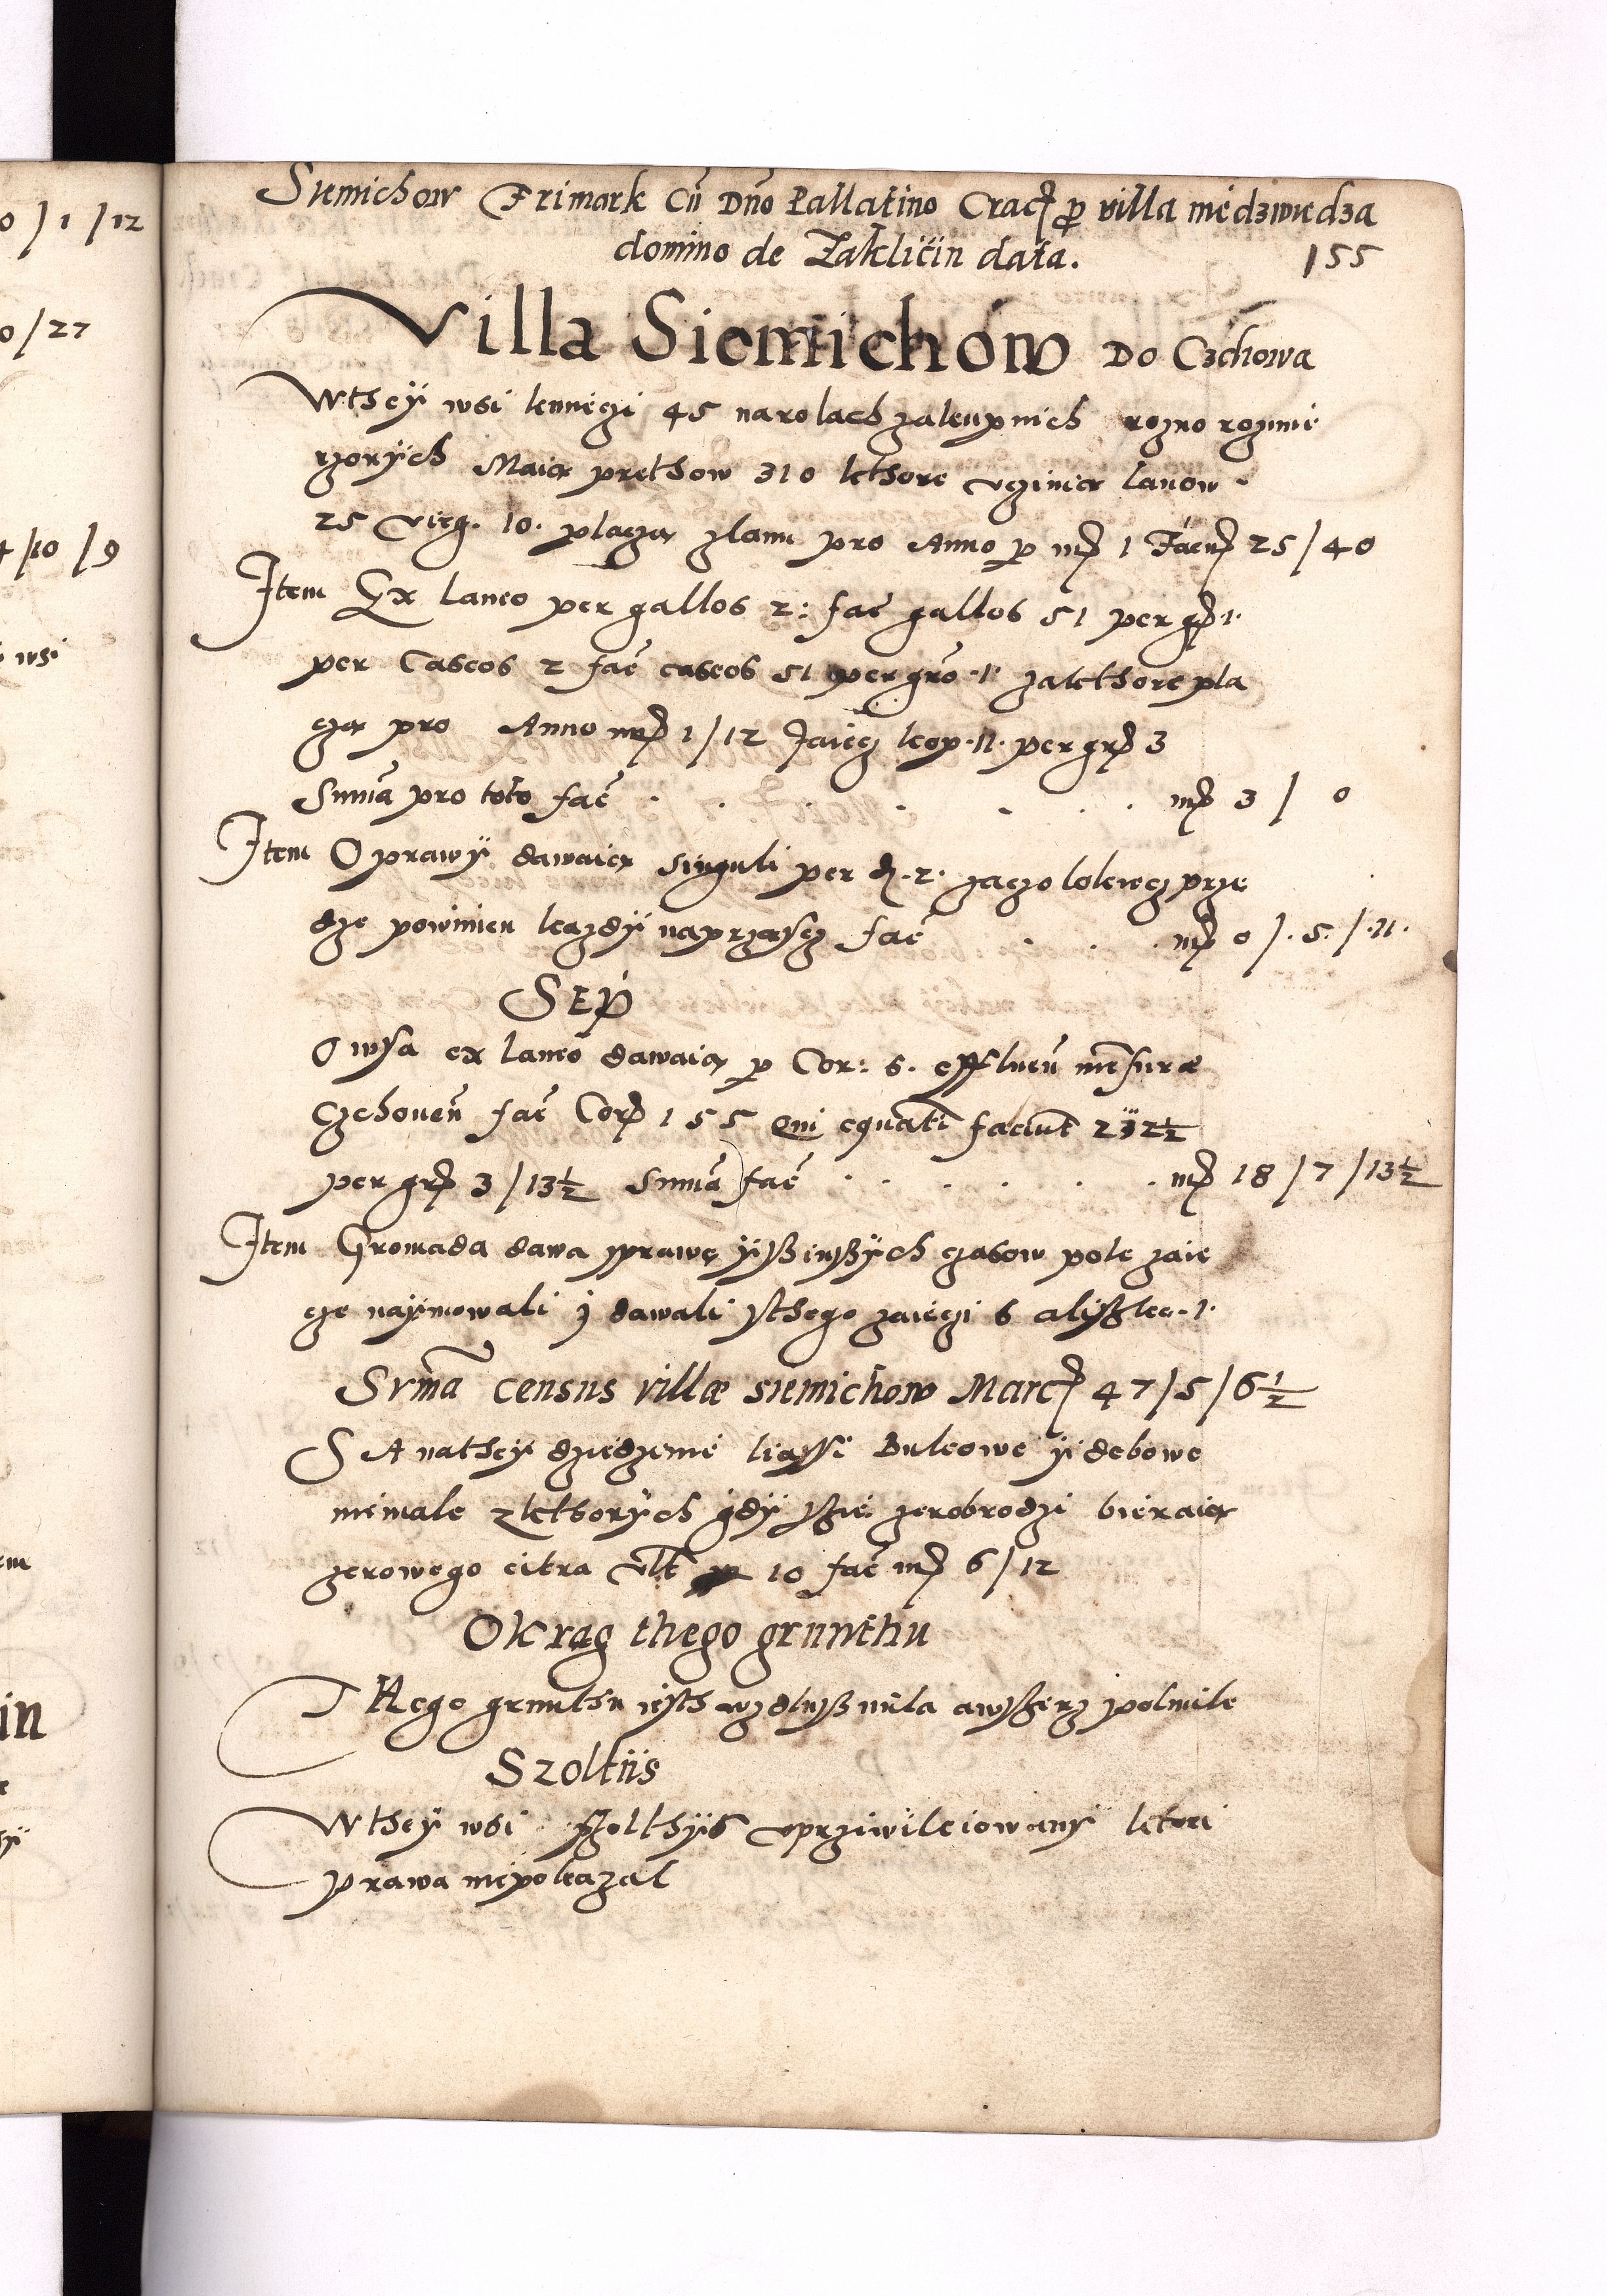 0 / 1 / 12
0 / 27
10 / 9
wsi
in
Siemichow Frimark Cū Dño Pallatino Crac. p villa niedzwiedza
domino de Zaklicin data.
155
Villa Siemichów Do Czchowa
Wthey wsi kmieczi 45 narolach zakupnich rozno rozmie
rzonÿch Maią prethow 310 kthore vczinią lanow
25 virg. 10. placzą zlanu pro Anno p mr 1 Facit mr 25 / 40
Item Ex laneo per gallos 2: fać gallos 51 per gr 1.
per Caseos 2 fać caseos 51 per gro 1. zakthore pla
czą pro Anno mr 1 / 12 Jaiecz kop. 11. per gr 3
Summa pro toto fać . . . . . mr 3 / 0
Item Oprawÿ dawaią singuli per d. 2. zaczo lokiecz prze
dze powinien kazdÿ naprzascz fać . . . mr 0 /. 5. /. 11.
SEP
Owsa ex laneo dawaią p Cor: 6. effluen mensuræ
Czchouen fać Cor 155 Qui equati faciunt 232½
per gr 3 / 13½ Summa fać . . . . . mr 18 / 7 / 13½
Item Gromada dawa sprawę ÿisz inszÿch czasow pole zaie
cze naÿmowali ÿ dawali sthego zaieczi 6 aliszkę 1.
Summa census villæ siemichow Marc 47 / 5 / 6½
SA nathey dziedzinie liassi Bukowe ÿ debowe
niemale zkthorÿch gdÿ sie zerobrodzi bieraią
zerowego citra vlt 10 fać mr 6 / 12
Okrąg thego grunthu
THego grunthu iesth wzdlusz mila awszerz polmile
Szoltiis
Wthey wsi szolthÿs vprziwileiowanÿ ktori
prawa niepokazal